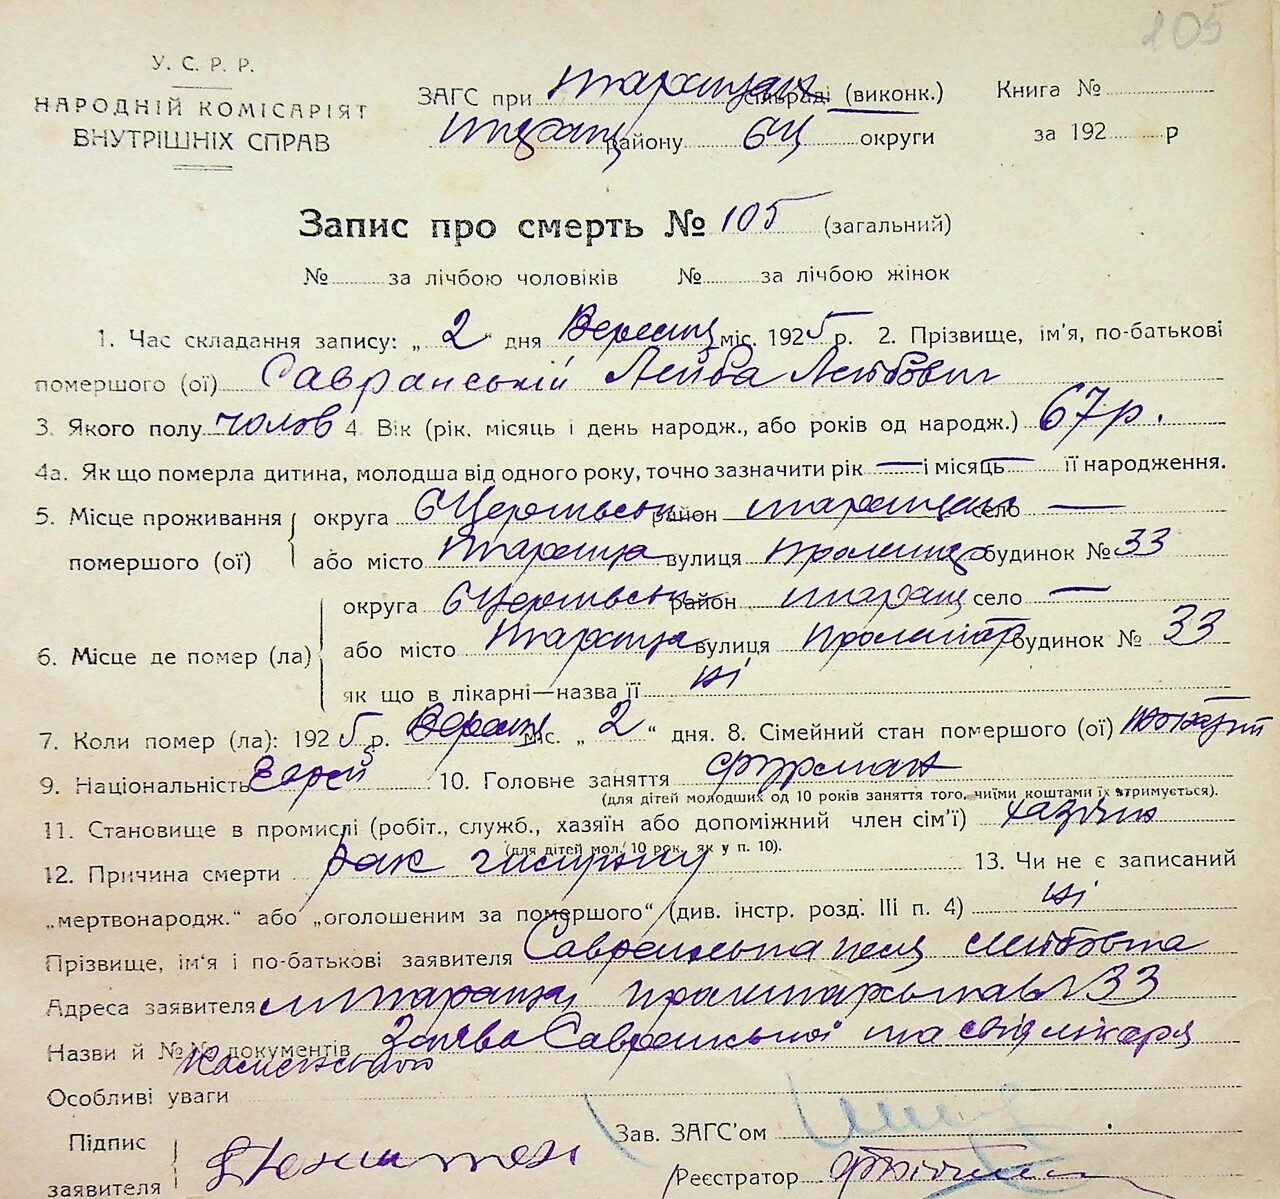 105
У. С. Р. Р.
НАРОДНІЙ КОМІСАРІЯТ
ВНУТРІШНІХ СПРАВ
ЗАГС при Таращан сільраді (виконк.)
Таращ району БЦ округи
Книга №
за 192 р
Запис про смерть № 105 (загальний)
№ за лічбою чоловіків № за лічбою жінок
1. Час складання запису: „ 2 “ дня Вересня міс. 1925 р. 2. Прізвище, ім'я, по-батькові
помершого (ої) Савранській Лейба Лейбович
3. Якого полу чолов 4. Вік (рік, місяць і день народж., або років од народж.) 67 р.
4а. Як що померла дитина, молодша від одного року, точно зазначити рік — і місяць — її народження.
5. Місце проживання помершого (ої) округа БЦерківськ район Таращан село —
або місто Тараща вулиця будинок № 33
6. Місце де помер (ла) округа БЦерківськ район Таращ село —
або місто Тараща вулиця Пролетар будинок № 33
як що в лікарні—назва її ні
7. Коли помер (ла): 1925 р. Вересня міс. „ 2 “ дня. 8. Сімейний стан помершого (ої) жонатий
9. Національність Єврей 10. Головне заняття фурман
(для дітей молодших од 10 років заняття того, чиїми коштами їх втримується).
11. Становище в промислі (робіт., служб., хазяїн або допоміжний член сім'ї) хазяїн
(для дітей мол. 10 рок. як у п. 10).
12. Причина смерти рак 13. Чи не є записаний
„мертвонародж.“ або „оголошеним за помершого“ (див. інстр. розд. III п. 4) ні
Прізвище, ім'я і по-батькові заявителя Савранська Лейбовна
Адреса заявителя м Тараща Пролетарська № 33
Назви й №№ документів Заява Савранської та свід лікаря
Каменського
Особливі уваги
Підпис
заявителя
Зав. ЗАГС'ом
Реєстратор